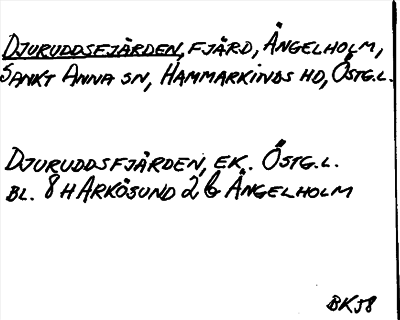 DJURUDDSFJÄRDEN, FJÄRD, ÄNGELHOLM,
SANKT ANNA SN, HAMMARKINDS HD, ÖSTG.L.
DJURUDDSFJÄRDEN, EK. ÖSTG.L.
BL. 8 H ARKÖSUND 2 b ÄNGELHOLM
BK58